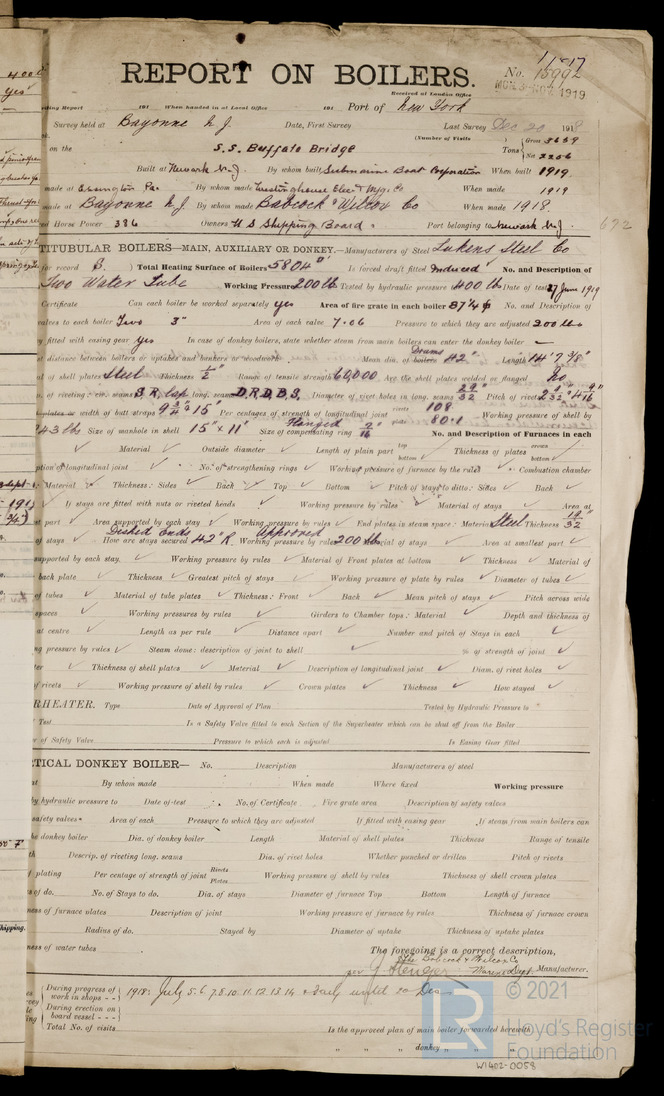 1-1-17
REPORT ON BOILERS.
No. 15992
Received at London Office
MON. 3-NOV. 1919
ting Report 191 When handed in at Local Office 191 Port of New York
Survey held at Bayonne N.J. Date, First Survey Last Survey Dec 20 1918
(Number of Visits ) Gross 3639
on the S.S. Buffalo Bridge Tons Net 2256
Built at Newark N.J. By whom built Submarine Boat Corporation When built 1919.
made at Essington Pa. By whom made Westinghouse Elec & Mfg. Co When made 1919
made at Bayonne N.J. By whom made Babcock & Wilcox Co When made 1918.
ed Horse Power 386 Owners U S Shipping Board. Port belonging to Newark N.J.
692
TITUBULAR BOILERS—MAIN, AUXILIARY OR DONKEY.—Manufacturers of Steel Lukens Steel Co
for record B. ) Total Heating Surface of Boilers 5804 □' Is forced draft fitted Induced No. and Description of
Two Water Tube Working Pressure 200 lb Tested by hydraulic pressure to 400 lb Date of test 27 June 1919
Certificate Can each boiler be worked separately yes Area of fire grate in each boiler 87¼ ϕ No. and Description of
valves to each boiler Two 3" Area of each valve 7.06 Pressure to which they are adjusted 200 lbs
y fitted with easing gear yes In case of donkey boilers, state whether steam from main boilers can enter the donkey boiler —
st distance between boilers or uptakes and bunkers or woodwork Mean dia. of boilers Drums 42" Length 14' 7 3/8"
al of shell plates Steel Thickness ½" Range of tensile strength 60,000 Are the shell plates welded or flanged No
n. of riveting: cir. seams S.R. lap long. seams D.R.D.B.S. Diameter of rivet holes in long. seams 29/32 Pitch of rivets
plates or width of butt straps 9¾" & 15" Per centages of strength of longitudinal joint rivets 108 plate 80.1 Working pressure of shell by
43 lbs Size of manhole in shell 15" x 11" Size of compensating ring Flanged No. and Description of Furnaces in each
Material ✓ Outside diameter ✓ Length of plain part top bottom ✓ Thickness of plates crown bottom ✓
ption of longitudinal joint ✓ No. of strengthening rings ✓ Working pressure of furnace by the rules ✓ Combustion chamber
: Material ✓ Thickness: Sides ✓ Back ✓ Top ✓ Bottom ✓ Pitch of stays to ditto: Sides ✓ Back ✓
✓ If stays are fitted with nuts or riveted heads ✓ Working pressure by rules ✓ Material of stays ✓ Area at
st part ✓ Area supported by each stay ✓ Working pressure by rules ✓ End plates in steam space: Material Steel Thickness 19/32"
of stays ✓ How are stays secured Dished Ends 42" R. Working pressure by rules Approved 200 lbs. Material of stays ✓ Area at smallest part ✓
supported by each stay. ✓ Working pressure by rules ✓ Material of Front plates at bottom ✓ Thickness ✓ Material of
back plate ✓ Thickness ✓ Greatest pitch of stays ✓ Working pressure of plate by rules ✓ Diameter of tubes ✓
of tubes ✓ Material of tube plates ✓ Thickness: Front ✓ Back ✓ Mean pitch of stays ✓ Pitch across wide
spaces ✓ Working pressures by rules ✓ Girders to Chamber tops: Material ✓ Depth and thickness of
at centre ✓ Length as per rule ✓ Distance apart ✓ Number and pitch of Stays in each ✓
ng pressure by rules ✓ Steam dome: description of joint to shell ✓ % of strength of joint ✓
ter ✓ Thickness of shell plates ✓ Material ✓ Description of longitudinal joint ✓ Diam. of rivet holes ✓
of rivets ✓ Working pressure of shell by rules ✓ Crown plates ✓ Thickness ✓ How stayed ✓
RHEATER. Type Date of Approval of Plan Tested by Hydraulic Pressure to
Test Is a Safety Valve fitted to each Section of the Superheater which can be shut off from the Boiler
r of Safety Valve Pressure to which each is adjusted Is Easing Gear fitted
TICAL DONKEY BOILER— No. Description Manufacturers of steel
at By whom made When made Where fixed Working pressure
by hydraulic pressure to Date of test No. of Certificate Fire grate area Description of safety valves
safety valves Area of each Pressure to which they are adjusted If fitted with easing gear If steam from main boilers can
he donkey boiler Dia. of donkey boiler Length Material of shell plates Thickness Range of tensile
th Descrip. of riveting long. seams Dia. of rivet holes Whether punched or drilled Pitch of rivets
f plating Per centage of strength of joint Rivets Plates Working pressure of shell by rules Thickness of shell crown plates
s of do. No. of Stays to do. Dia. of stays Diameter of furnace Top Bottom Length of furnace
ness of furnace plates Description of joint Working pressure of furnace by rules Thickness of furnace crown
Radius of do. Stayed by Diameter of uptake Thickness of uptake plates
ness of water tubes The foregoing is a correct description,
The Babcock & Wilcox Co
per Marine Dept. Manufacturer.
During progress of work in shops - - 1918: July 5. 6. 7. 8. 10. 11. 12. 13. 14
During erection on board vessel - - -
Total No. of visits
Is the approved plan of main boiler forwarded herewith
" " " donkey " " "
LR © 2021
Lloyd's Register
Foundation
W1402-0058